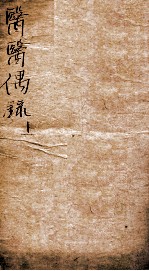 醫醫偶錄